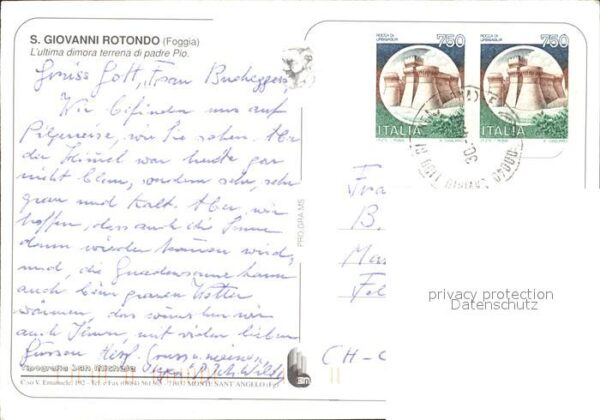 S. GIOVANNI ROTONDO (Foggia)
L'ultima dimora terrena di padre Pio.
Grüss Gott, Frau
Wir befinden uns auf
Pilgerreise, wie Sie sehen. Aber
der Himmel war heute gar
nicht blau, sondern sehr, sehr
grau und kalt. Aber wir
hoffen, dass auch die Sonne
dann wieder kommen wird,
und, die Gnadensonne kann
auch beim grauen Wetter
wärmen, das wünschen wir
auch Ihnen, mit vielen lieben
Grüssen Herzl. Gruss
Tipografia San Michele
C.so V. Emanuele, 192 - Tel. e Fax (0884) 561505 - 71037 MONTE SANT'ANGELO (Fg)
PRO.GRA.MS
ROCCA DI URBISAGLIA 750
ITALIA
ROCCA DI URBISAGLIA 750
ITALIA
00040
Fra
B.
Ma
Fe
CH-
privacy protection
Datenschutz